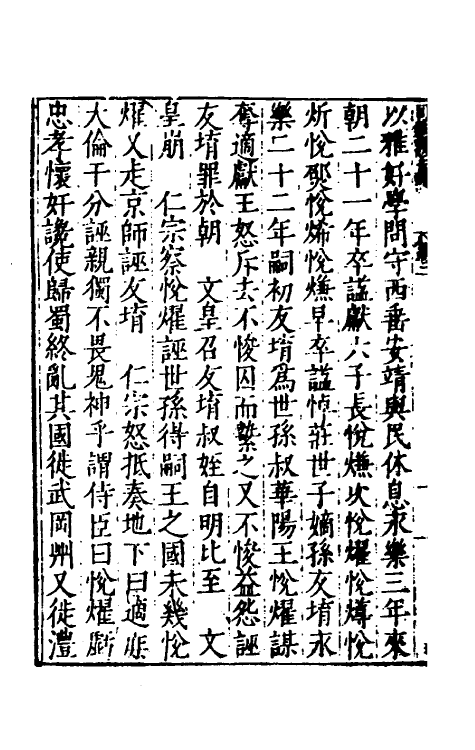 以雅好學問守西番安靖與民休息永樂三年來
朝二十一年卒謚獻六子長悅㷿次悅燿悅㷆悅
炘悅𤐤悅烯悅㷿早卒謚悼莊世子嫡孫友堉永
樂二十二年嗣初友堉爲世孫叔華陽王悅燿謀
奪適獻王怒斥去不悛囚而繫之又不悛益怨誣
友堉罪於朝　文皇召友堉叔姪自明比至　文
皇崩　仁宗察悅燿誣世孫得嗣王之國未幾悅
燿又走京師誣友堉　仁宗怒抵奏地下曰適庶
大倫干分誣親獨不畏鬼神乎謂侍臣曰悅燿虧
忠孝懷奸讒使歸蜀終亂其國徙武岡州又徙澧